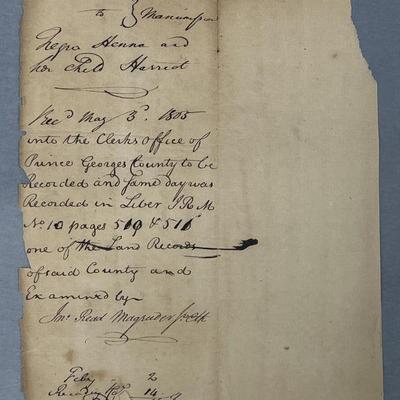 to } Manumission
Negro Henna and
her Child Harriot
Rec'd May 3d. 1805
into the Clerks Office of
Prince Georges County to be
Recorded and same day was
Recorded in Liber J R M
No 10 pages 510 & 511
one of the Land Records
of said County and
Examined by
Jno. Read Magruder Jr Clk
2
Recording 14